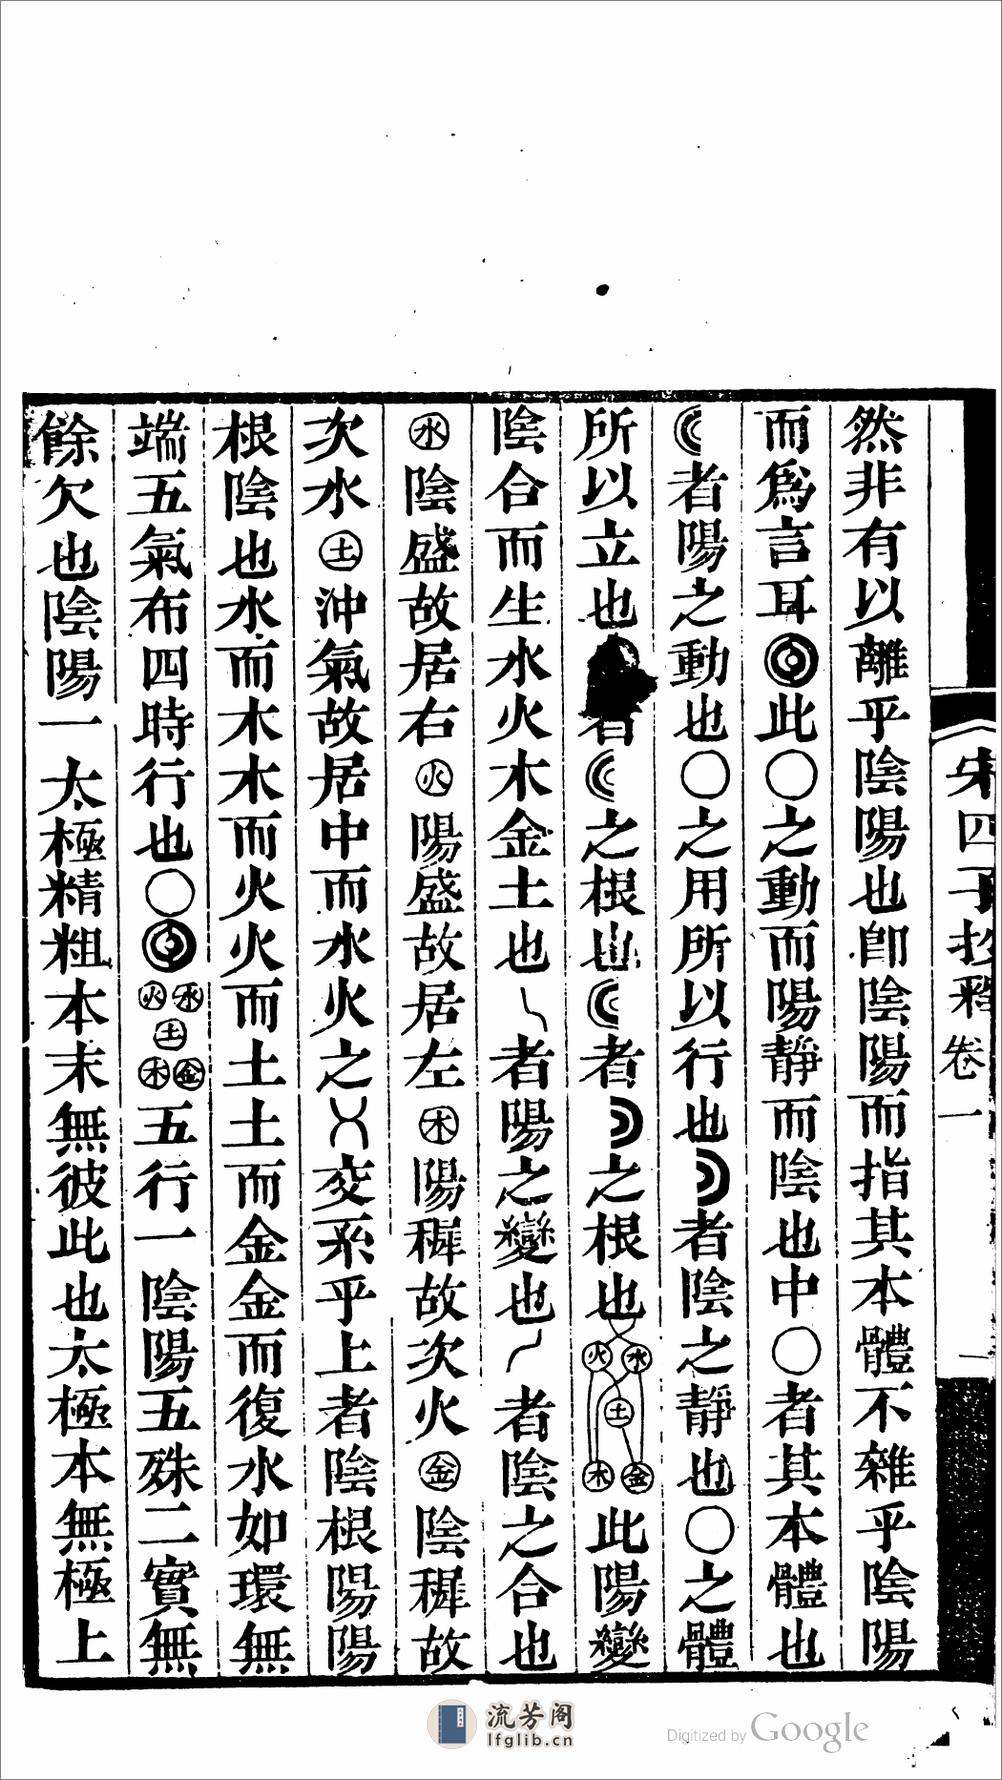 然非有以離乎陰陽也卽陰陽而指其本體不雜乎陰陽
而爲言耳此○之動而陽靜而陰也中○者其本體也
者陽之動也○之用所以行也者陰之靜也○之體
所以立也者之根也者之根也㊋㊌㊏㊍㊎此陽變
陰合而生水火木金土也者陽之變也者陰之合也
㊌陰盛故居右㊋陽盛故居左㊍陽穉故次火㊎陰穉故
次水㊏沖氣故居中而水火之交系乎上者陰根陽陽
根陰也水而木木而火火而土土而金金而復水如環無
端五氣布四時行也○㊋㊌㊏㊍㊎五行一陰陽五殊二實無
餘欠也陰陽一太極精粗本末無彼此也太極本無極上
宋四子抄釋 卷一
一
流芳阁
lfglib.cn
Digitized by Google